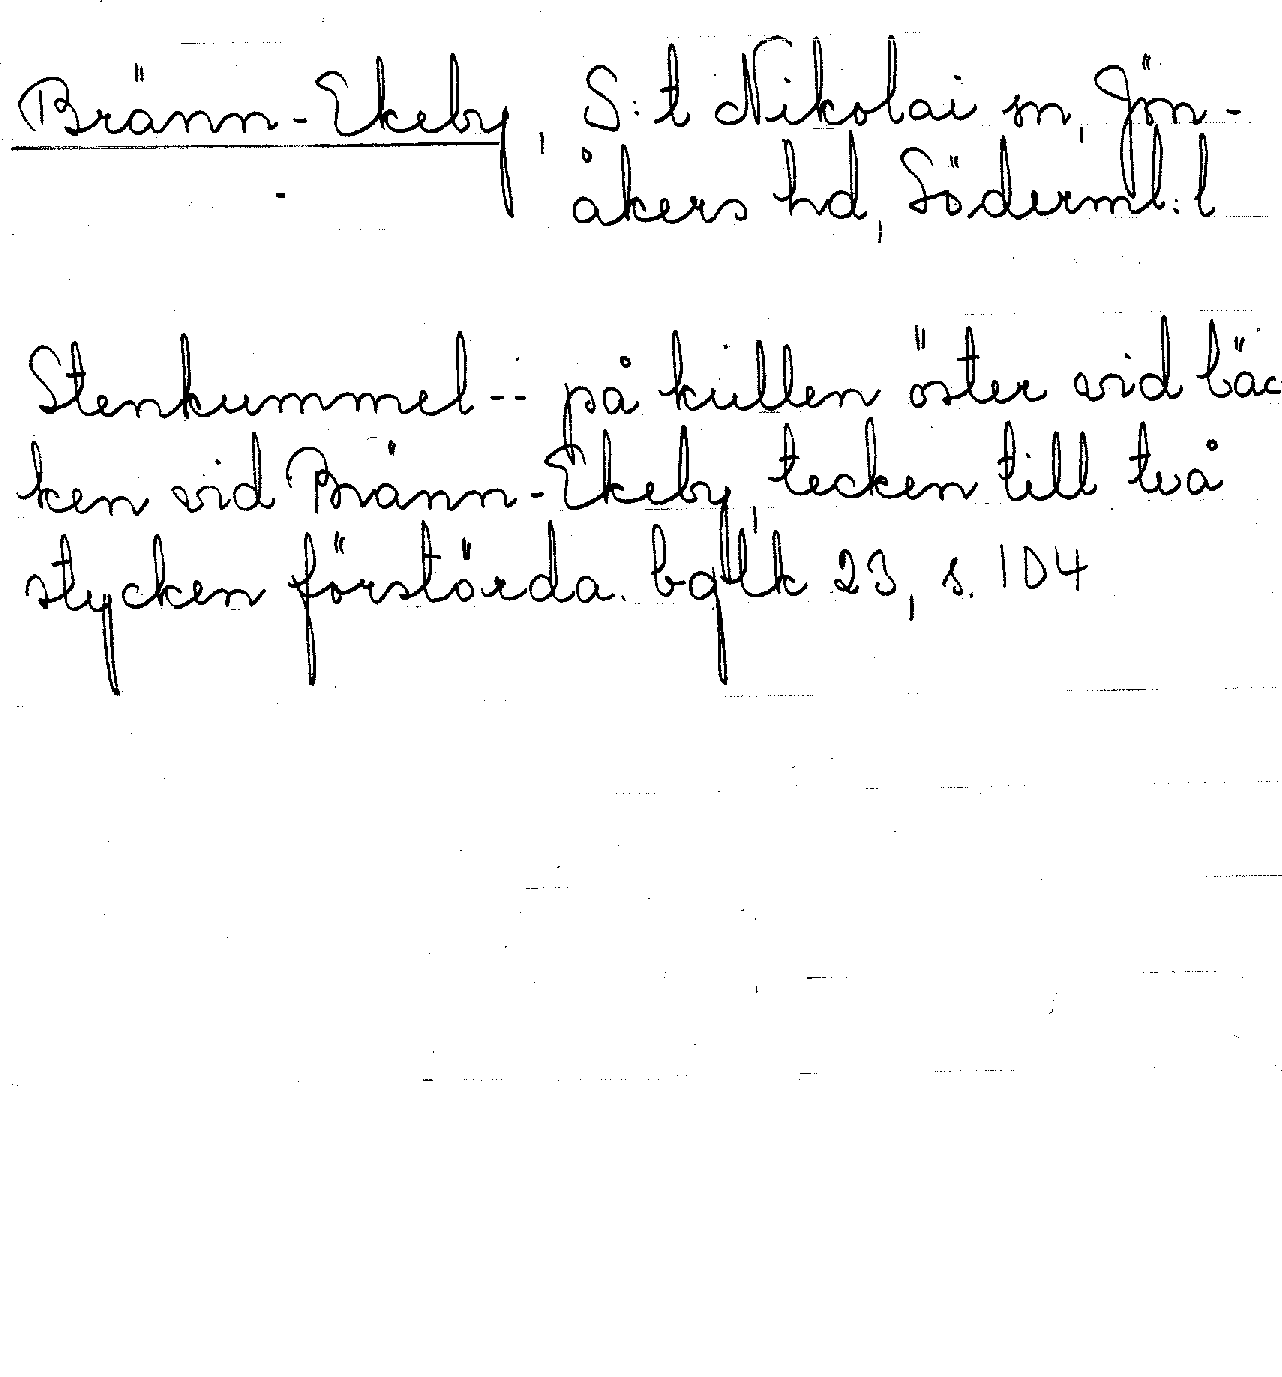 Bränn-Ekeby, S:t Nikolai sn, Jön-
åkers hd, Söderml:l
Stenkummel -- på kullen öster vid bäc
ken vid Bränn-Ekeby, tecken till två
stycken förstörda. bglk 23, s. 104